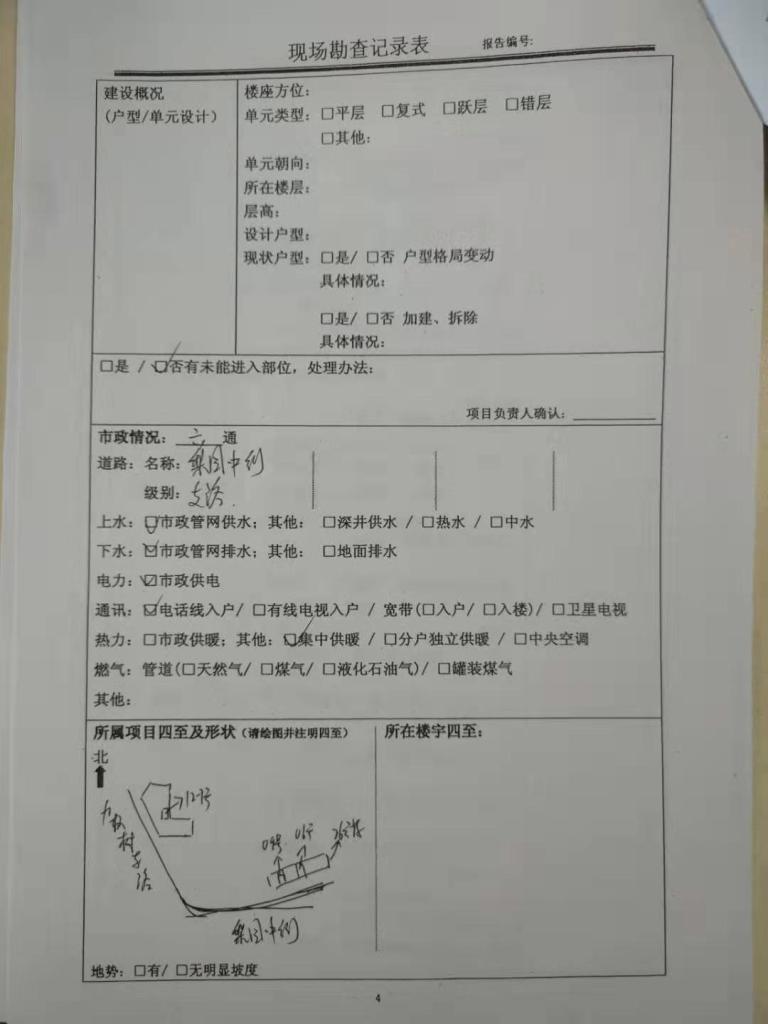 现场勘查记录表
报告编号:
建设概况
(户型/单元设计)
楼座方位:
单元类型: □平层 □复式 □跃层 □错层
□其他:
单元朝向:
所在楼层:
层高:
设计户型:
现状户型: □是/ □否 户型格局变动
具体情况:
□是/ □否 加建、拆除
具体情况:
□是 / ☑否有未能进入部位, 处理办法:
项目负责人确认:
市政情况: 六 通
道路: 名称:
级别: 支路
上水: ☑市政管网供水; 其他: □深井供水 / □热水 / □中水
下水: ☑市政管网排水; 其他: □地面排水
电力: ☑市政供电
通讯: ☑电话线入户/ □有线电视入户 / 宽带(□入户/ □入楼)/ □卫星电视
热力: □市政供暖; 其他: ☑集中供暖 / □分户独立供暖 / □中央空调
燃气: 管道(□天然气/ □煤气/ □液化石油气)/ □罐装煤气
其他:
所属项目四至及形状(请绘图并注明四至)
所在楼宇四至:
北
12号
地势: □有/ □无明显坡度
4